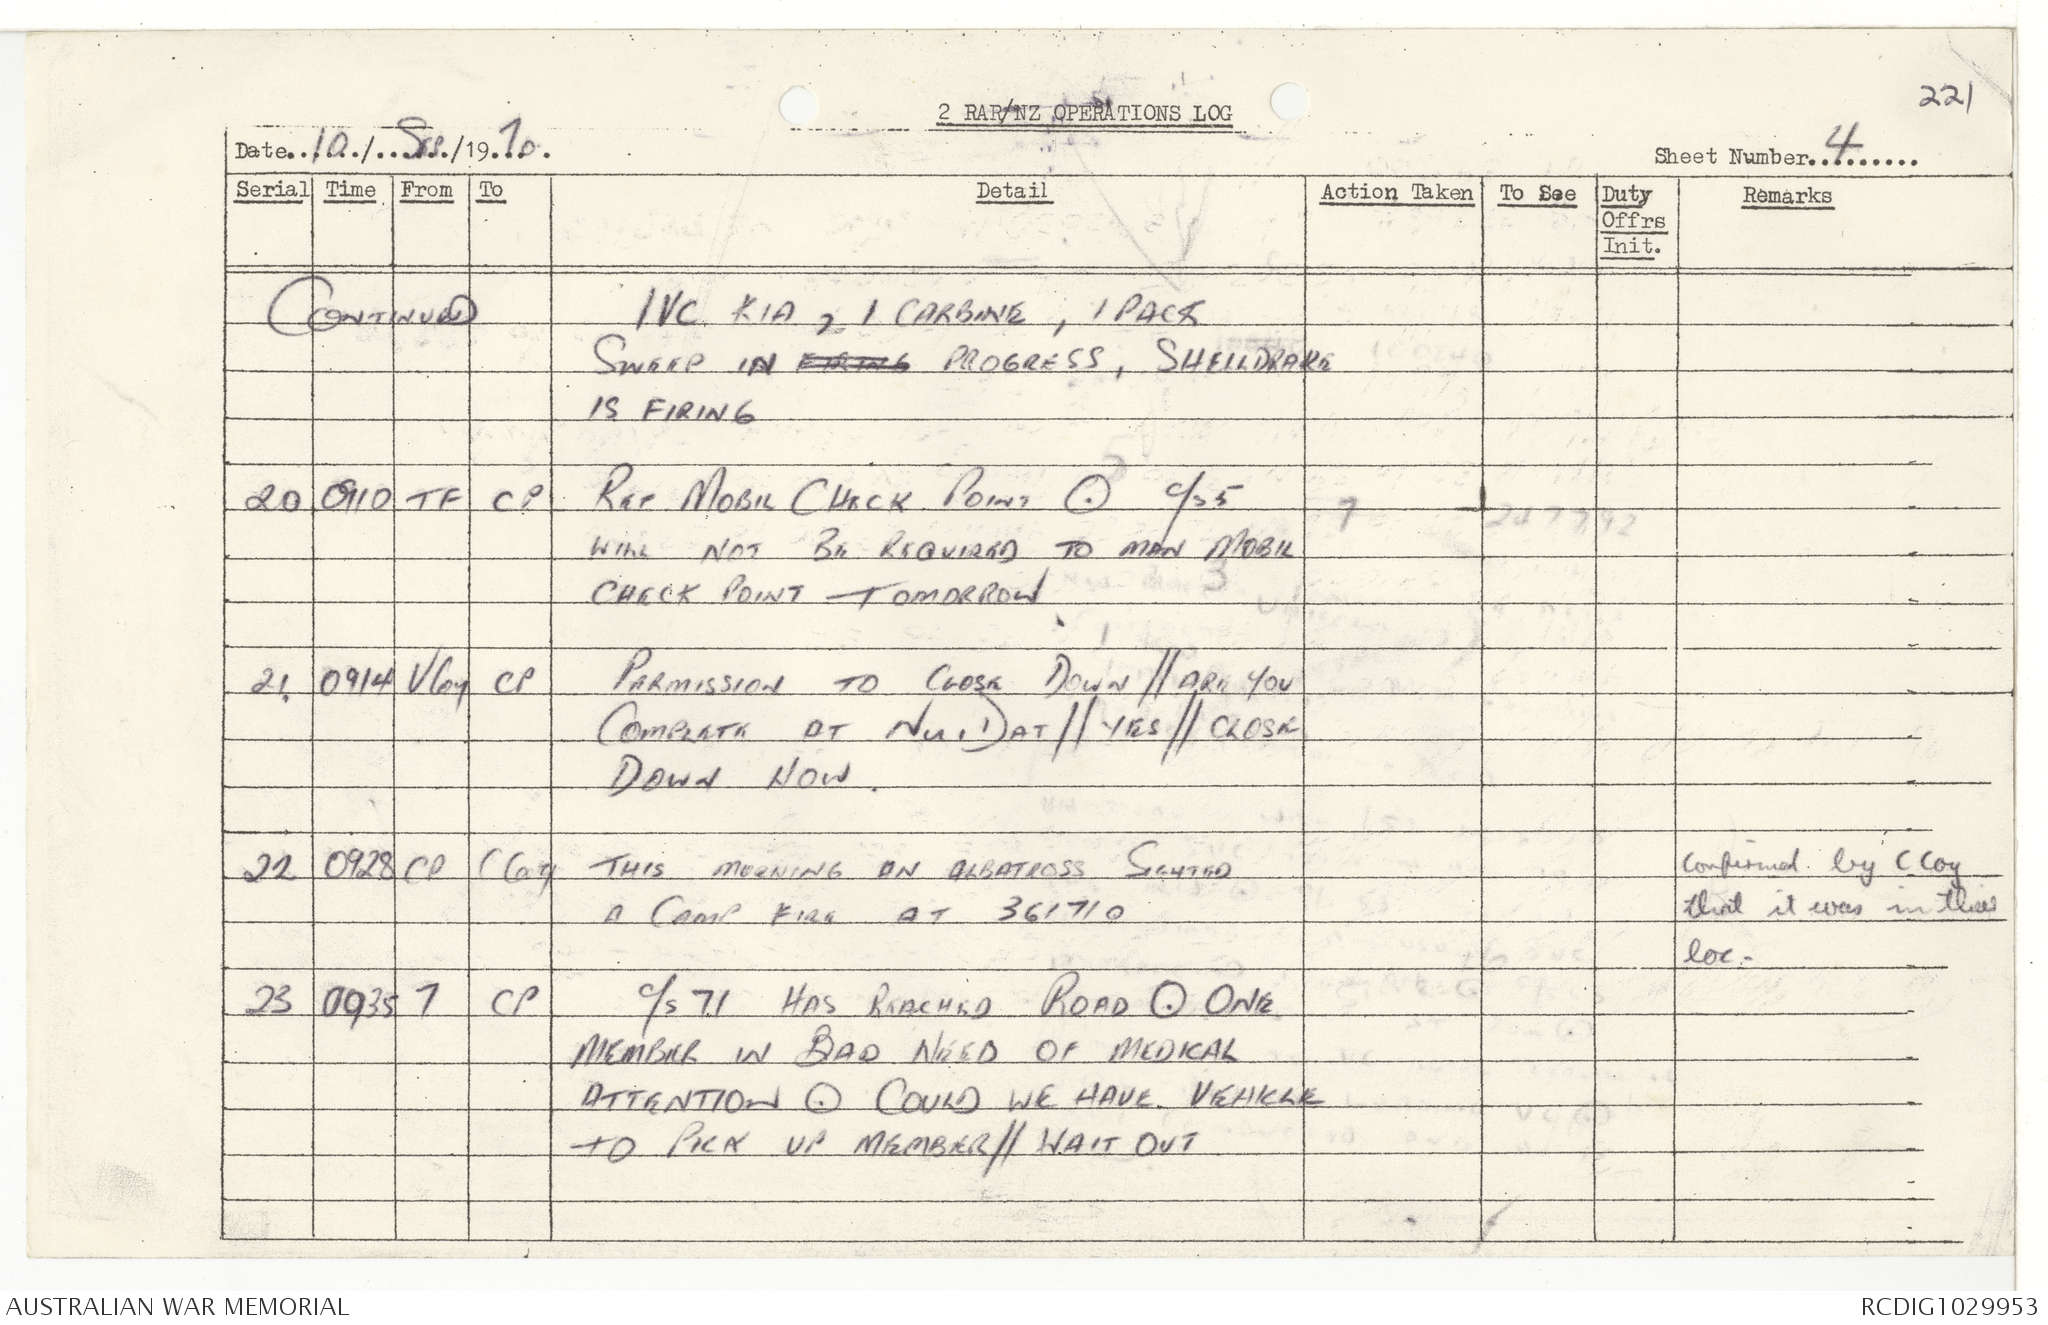 221
2 RAR/NZ OPERATIONS LOG
Date 10/ Sep /1970.
Sheet Number 4
Serial Time From To Detail Action Taken To See Duty Offrs Init. Remarks
CONTINUED 1 VC KIA, 1 CARBINE, 1 PACK
SWEEP IN FIRING PROGRESS, SHELLDRAKE
IS FIRING
20 0910 TF CP REF MOBIL CHECK POINT ⊙ c/s 5
WILL NOT BE REQUIRED TO MAN MOBIL
CHECK POINT TOMORROW
21. 0914 V Coy CP PERMISSION TO CLOSE DOWN // ARE YOU
COMPLETE AT NUI DAT // YES // CLOSE
DOWN NOW.
22 0928 CP C Coy THIS MORNING AN ALBATROSS SIGHTED confirmed by C Coy
A CAMP FIRE AT 361710 that it was in their
loc.
23 0935 7 CP c/s 71 HAS REACHED ROAD ⊙ ONE
MEMBER IN BAD NEED OF MEDICAL
ATTENTION ⊙ COULD WE HAVE VEHICLE
TO PICK UP MEMBER // WAIT OUT
AUSTRALIAN WAR MEMORIAL
RCDIG1029953